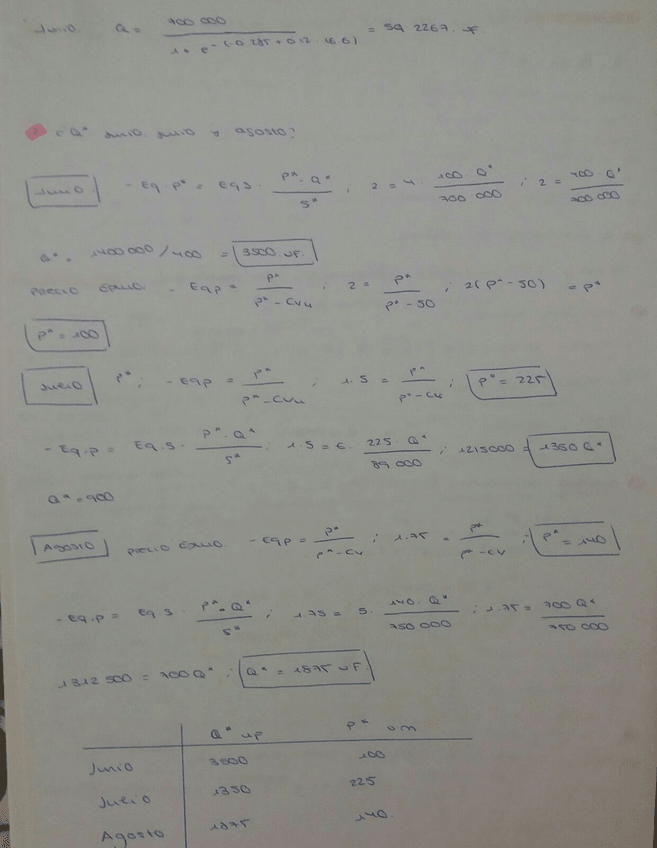 Junio. Q = 700 000 / 1 + e^-(-0.285 + 0.12 · 16.6) = 592267. uf
¿ Q* Junio, Julio y agosto?
Junio - Eq.p* = Eq.s · P* · Q* / S* ; 2 = 4 · 100 · Q* / 700 000 ; 2 = 400 · Q* / 700 000
Q* = 1400 000 / 400 = 3500 uf.
precio óptimo. - Eqp = P* / P* - CVu ; 2 = P* / P* - 50 ; 2(P* - 50) = P*
P* = 100
Julio P* ; - Eqp = P* / P* - CVu ; 1.5 = P* / P* - CV ; P* = 225
- Eq.p = Eq.s · P* · Q* / S* ; 1.5 = 6 · 225 · Q* / ; 1215000 = 1350 Q*
Q* = 900
Agosto precio óptimo. - Eqp = P* / P* - CV ; 1.75 = P* / P* - CV ; P* = 140
- Eq.p = Eq.s · P* · Q* / S* ; 1.75 = 5 · 140 · Q* / 750 000 ; 1.75 = 700 Q* / 750 000
1312 500 = 700 Q* ; Q* = 1875 uF.
Q* up P* um
Junio 3500 100
Julio 1350 225
Agosto 1875 140.